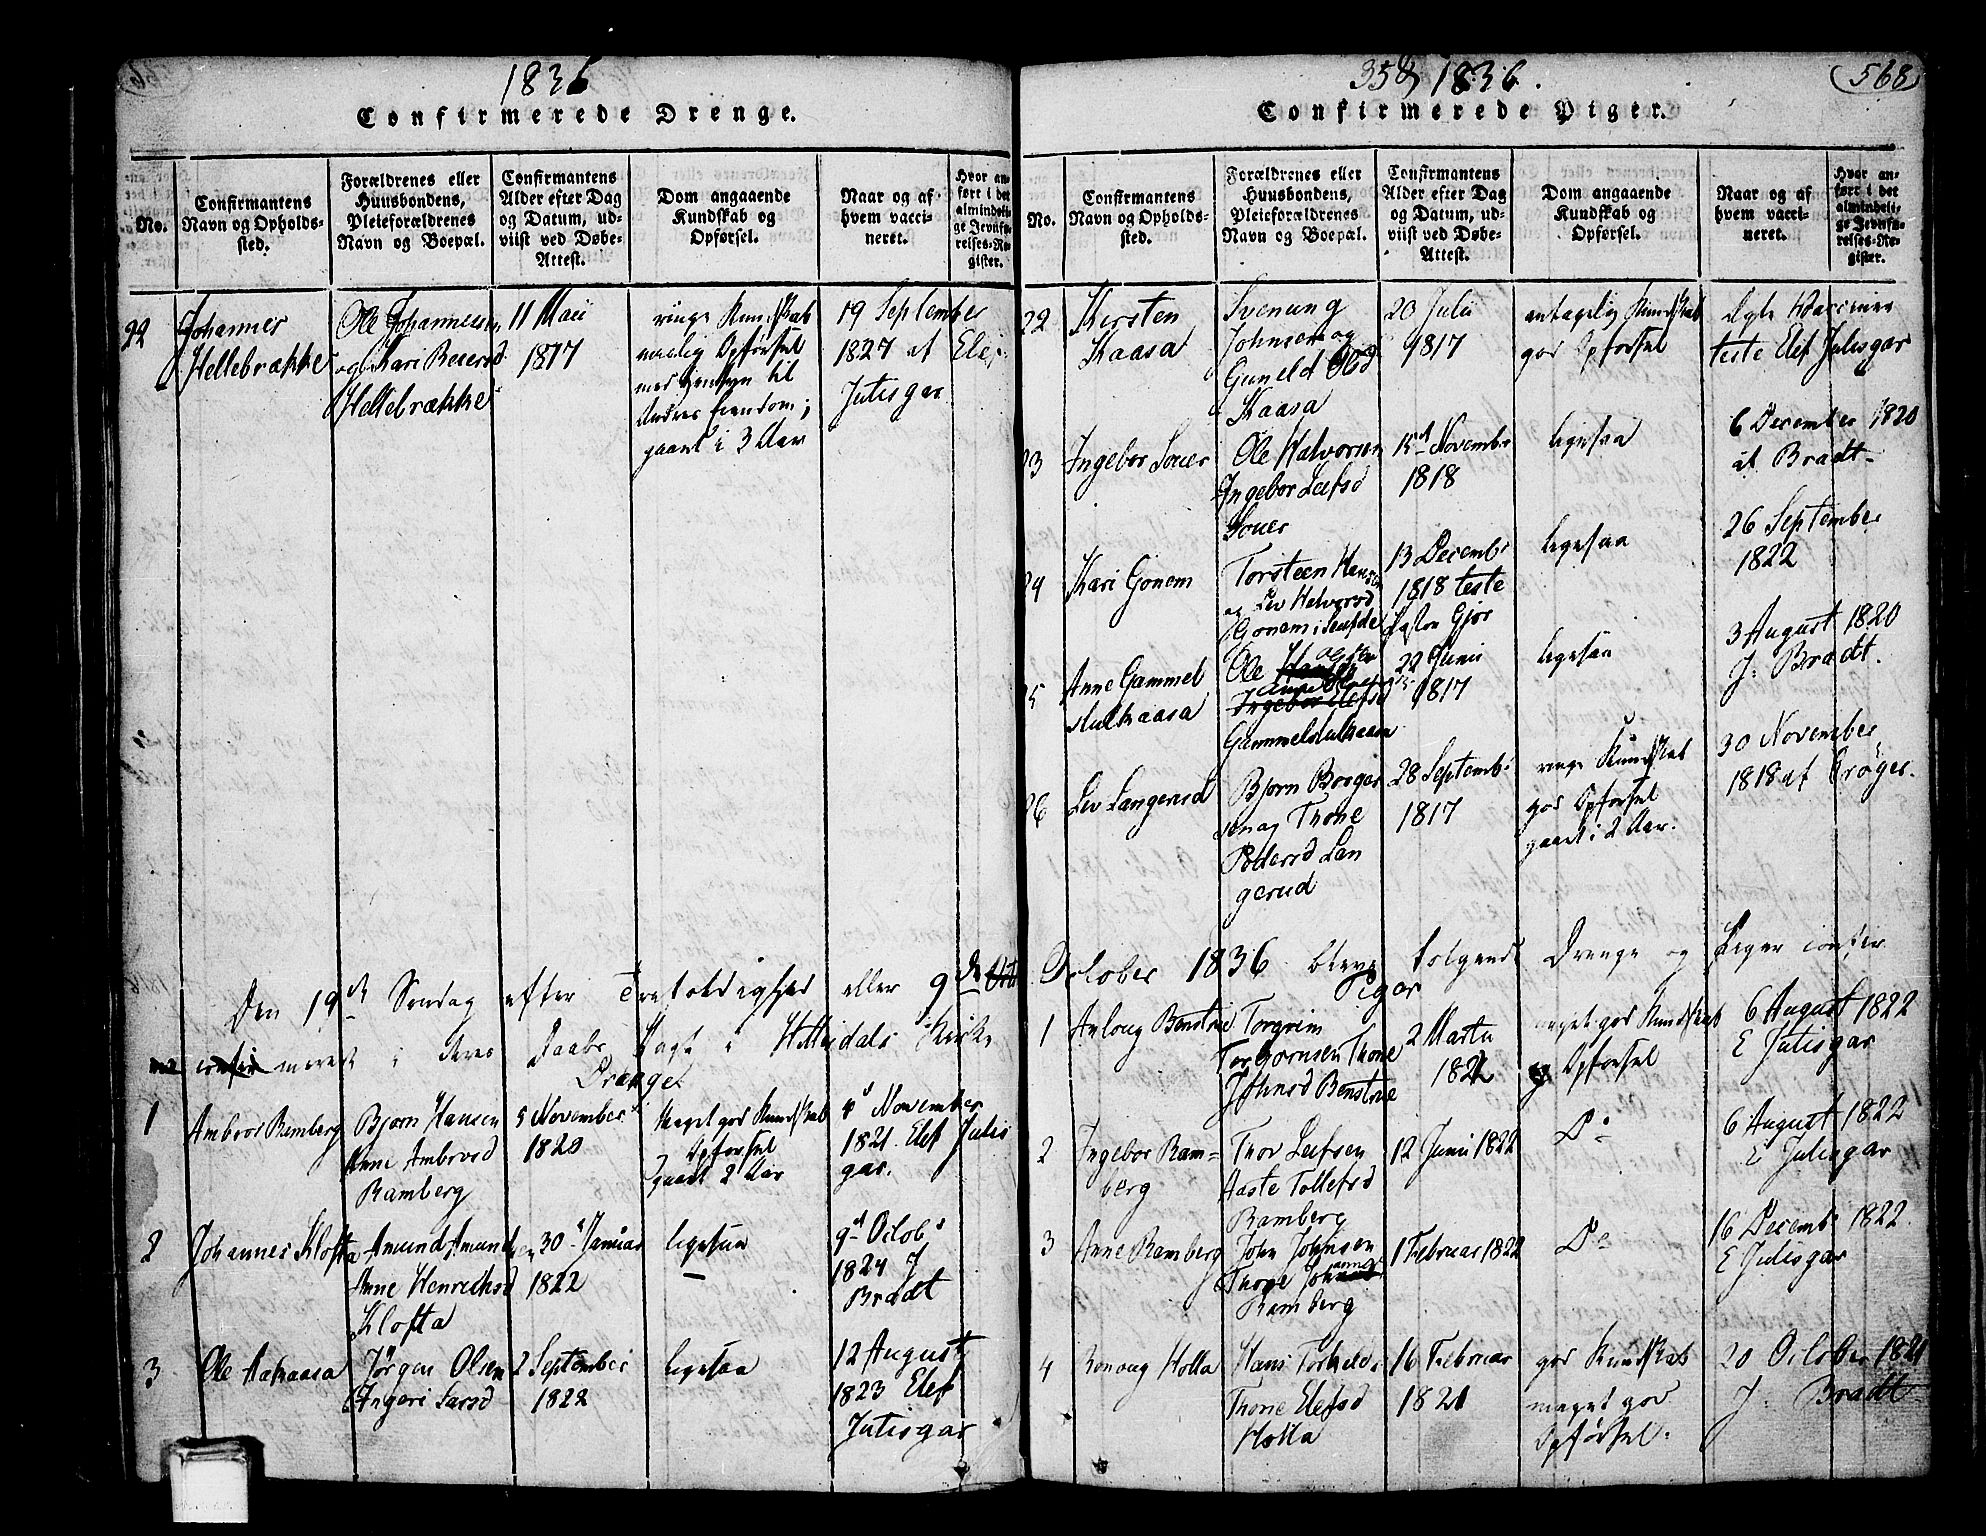 1836
Confirmerede Drenge.
No.
Confirmantens Navn og Opholds-sted.
Forældrenes eller Huusbondens, Pleieforældrenes Navn og Boepæl.
Confirmantens Alder efter Dag og Datum, ud-viist ved Døbe-Attest.
Dom angaaende Kundskab og Opførsel.
Naar og af hvem vacci-neret.
Hvor an-ført i det almindeli-ge Jevnfø-relses-Re-gister.
22
Johannes
Hellebrække
Ole Johannessen
og Kari Reiersd
Hellebrække
11 Maii
1817
ringe Kundskab
med Hensyn til
gaaet i 3 Aar
19 September
1827 af Elef
Julisgar
Den 19d Søndag efter Trefoldighed eller 9de
meret i deres Daabs Pagt i Hitterdals Kirke
Drenge
1
Ambros Ramberg
Bjorn Hansen
Anne Ambrosd
Ramberg
5 November
1820
meget god Kundskab
Opførsel
gaaet 2 Aar
4d November
1821. Elef Julis
gar.
2
Johannes Klofta
Amund Amund
Anne Henriksd
Klofta
30d Januar
1822
ligesaa
9d Octob
1824 J
Bradt
3
Ole Aakaasa
Jörgen Olsen
Ingeri Larsd
2 September
1822
ligesaa
12 August
1823 Elef
Julisgar
358 1836.
568
Confirmerede Piger.
No.
Confirmantens Navn og Opholds-sted.
Forældrenes eller Huusbondens, Pleieforældrenes Navn og Boepæl.
Confirmantens Alder efter Dag og Datum, ud-viist ved Døbe-Attest.
Dom angaaende Kundskab og Opførsel.
Naar og af hvem vacci-neret.
Hvor an-ført i det almindeli-ge Jevnfø-relses-Re-gister.
22
Kersten
Kaasa
Svenung
Johnsen og
Guneld Olsd
Kaasa
20 Julii
1817
antagelig Kundskab
god Opførsel
teste Elef Julisgar
23
Ingebor
Ole Halvorsen
Ingebor Leifsd
15d November
1818
ligesaa
6 December 1820
af Bradt
24
Kari Gonem
Torsteen Hansen
og Liv Halvorsd
Gonem i
13 Decembr
1818 teste
Pastor
ligesaa
26 September
1822
25
Anne Gammel
stulkaasa
Ole
Ingebor Elefsd
Gammelstulkaasa
22 Junii
1817
ligesaa
3 August 1820
J. Bradt.
26
Liv Langerud
Bjorn Borgar
sen og Thone
Pedersd Lan
gerud
28 Septemb
1817
ringe Kundskab
god Opførsel
gaaet i 2 Aar.
30 November
1818 af Crøger.
October 1836 bleve følgende Drenge og Piger confir
Piger
1
Aaloug Benstrue
Torgrim
Torbjornsen Thone
Johnsd Benstrue
2 Marts
1822
meget god Kundskab
og Opførsel
6 August 1822
E Julisgar
2
Ingebor Ram-
berg
Thor Leifsen
Aaste Tollefsd
Ramberg
12 Junii 1822
Do
6 August 1822
E Julisgar
3
Anne Ramberg
John Johnsen
Thone
Ramberg
1 Februar 1822
Do
16 Decemb 1822.
E Julisgar
4
Ronoug Holla
Hans Torkelds
Thone Elefsd
Holla
16 Februar
1821
god Kundskab
meget god
Opførsel.
20 October 1821
J. Bradt